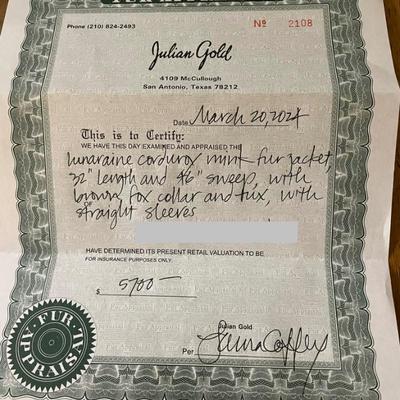 Phone (210) 824-2493
№ 2108
Julian Gold
4109 McCullough
San Antonio, Texas 78212
Date March 20, 2024
This is to Certify:
WE HAVE THIS DAY EXAMINED AND APPRAISED THE
lunaraine corduroy mink fur jacket,
32" length and 46" sweep, with
brown fox collar and tux, with
OF straight sleeves
HAVE DETERMINED ITS PRESENT RETAIL VALUATION TO BE
FOR INSURANCE PURPOSES ONLY.
$ 5700
Julian Gold
Per
FUR APPRAISAL